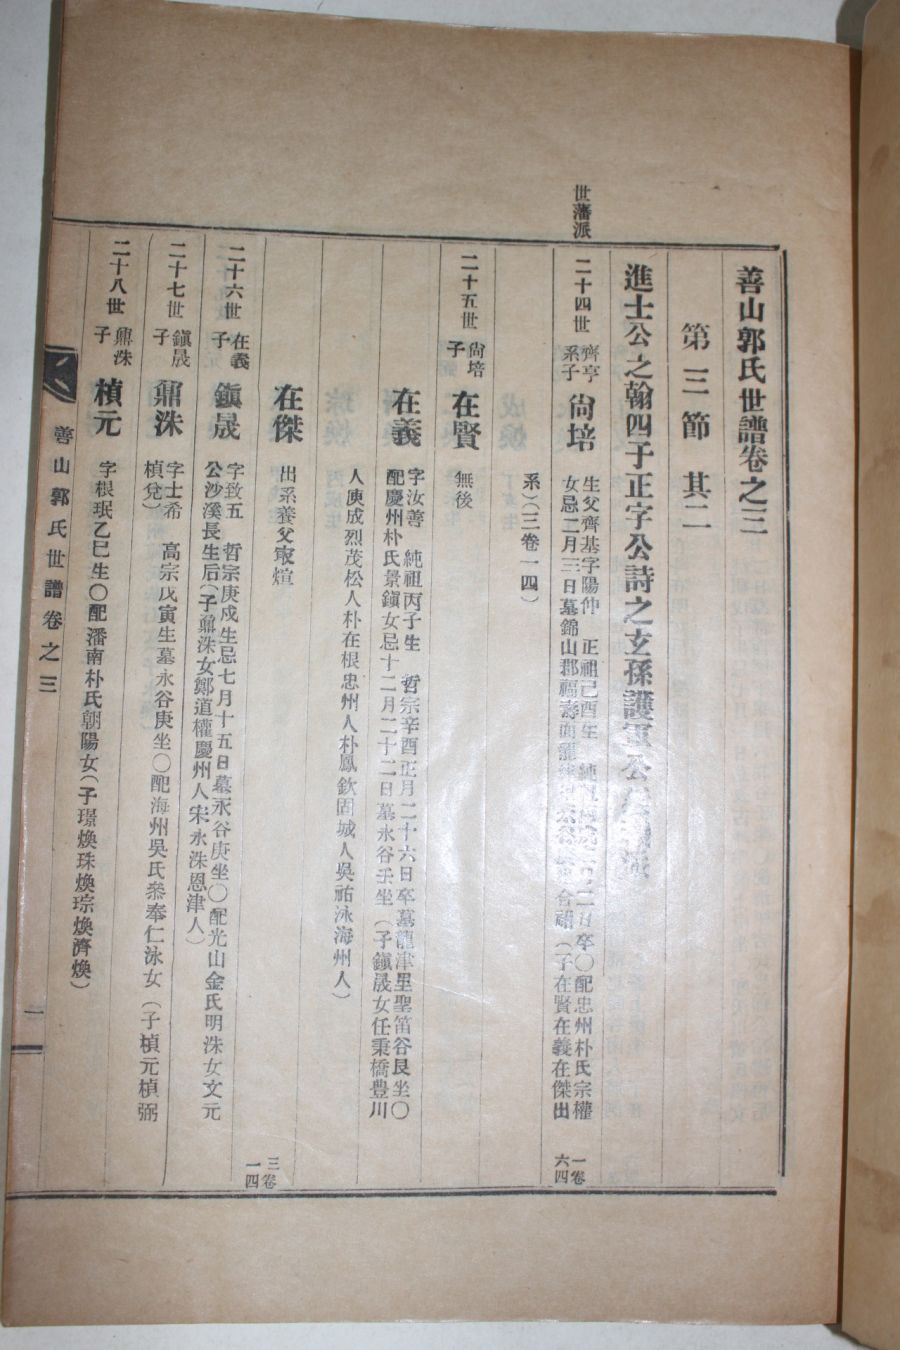 善山郭氏世譜卷之三
第三節 其二
進士公之翰四子正字公詩之玄孫護軍公
世藩派
二十四世 齊亨系子 尙培 生父齊基字陽仲 正祖己酉生 純祖 卒〇配忠州朴氏宗權
女忌二月三日墓錦山郡福壽面 合祔（子在賢在義在傑出
系）（三卷一四）
一卷六四
二十五世 尙培子 在賢 無後
在義 字汝善 純祖丙子生 哲宗辛酉正月二十六日卒墓龍津里聖笛谷艮坐〇
配慶州朴氏景鎭女忌十二月二十二日墓永谷壬坐（子鎭晟女任秉橋豊川
人庾成烈茂松人朴在根忠州人朴鳳欽固城人吳祐泳海州人）
在傑 出系養父寅煊
三卷一四
二十六世 在義子 鎭晟 字致五 哲宗庚戌生忌七月十五日墓永谷庚坐〇配光山金氏明洙女文元
公沙溪長生后（子鼐洙女鄭道權慶州人宋永洙恩津人）
二十七世 鎭晟子 鼐洙 字士希 高宗戊寅生墓永谷庚坐〇配海州吳氏參奉仁泳女（子楨元楨弼
楨兌）
二十八世 鼐洙子 楨元 字根珉乙巳生〇配潘南朴氏朝陽女（子璟煥珠煥琮煥濟煥）
善山郭氏世譜卷之三
一